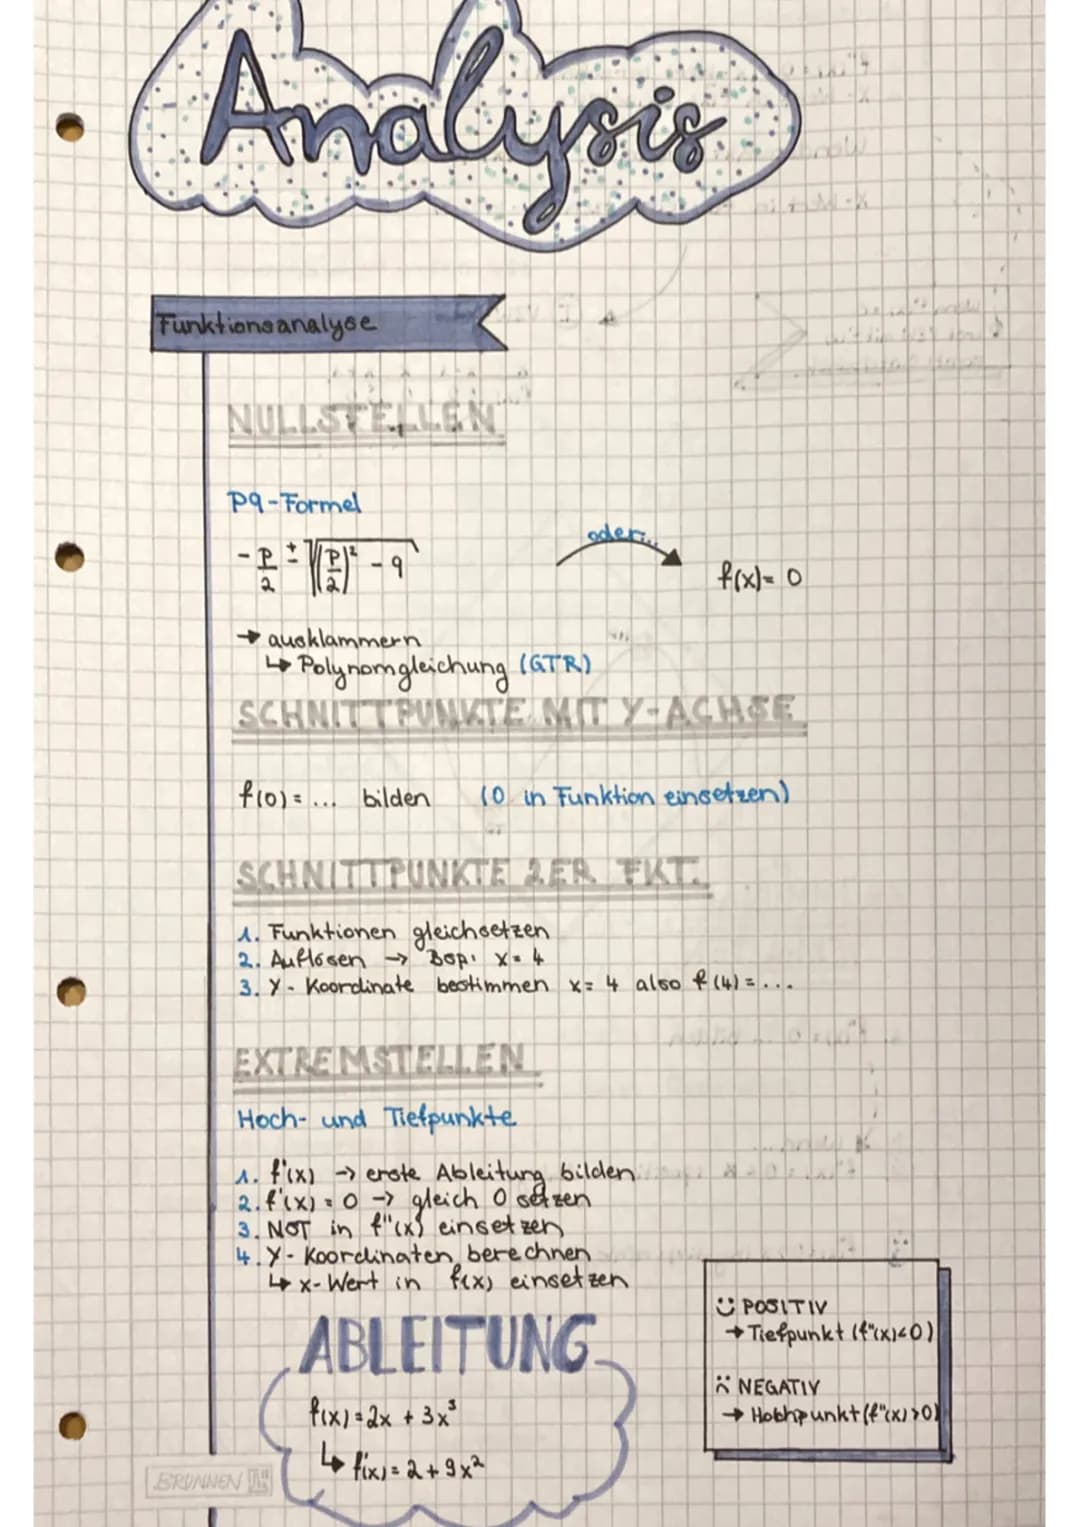 Analysis
Funktionsanalyse
NULLSTELLEN
Pq-Formel
- p/2 ± √((p/2)² - q
oder...
f(x)= 0
→ ausklammern
↳ Polynomgleichung (GTR)
SCHNITTPUNKTE MIT Y-ACHSE
f(0) = ... bilden (0 in Funktion einsetzen)
SCHNITTPUNKTE 2ER FKT.
1. Funktionen gleichsetzen
2. Auflösen → Bsp: x = 4
3. Y - Koordinate bestimmen x = 4 also f (4) = ...
EXTREMSTELLEN
Hoch- und Tiefpunkte
1. f'(x) → erste Ableitung bilden
2. f'(x) = 0 → gleich 0 setzen
3. NOT in f"(x) einsetzen
4. Y - Koordinaten berechnen
↳ x-Wert in f(x) einsetzen
POSITIV
→ Tiefpunkt (f"(x)<0)
NEGATIV
→ Hochpunkt (f"(x)>0)
ABLEITUNG
f(x) = 2x + 3x³
↳ f'(x) = 2 + 9x²
BRUNNEN